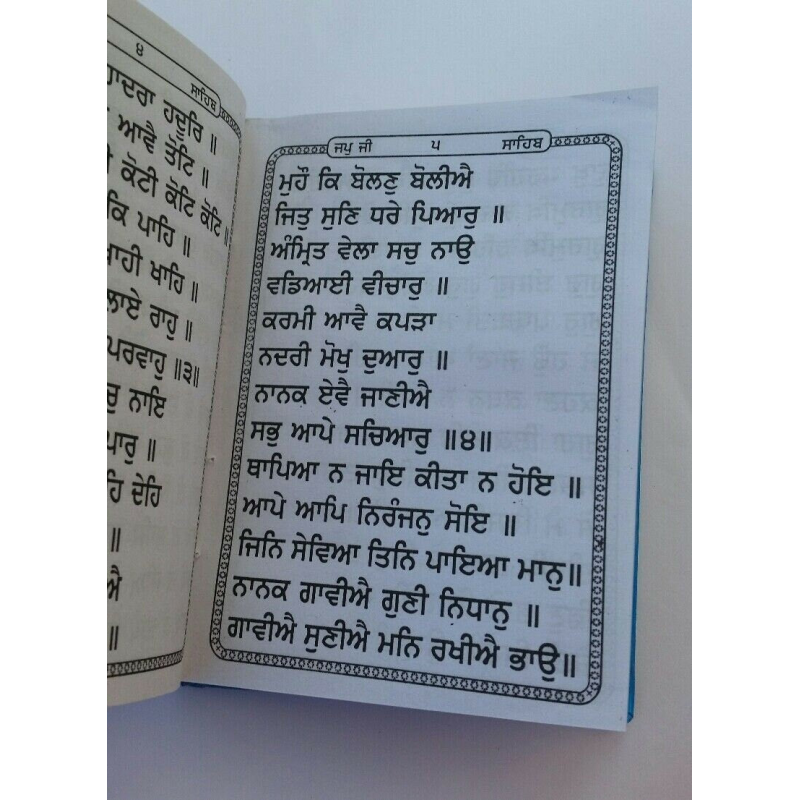 ੪ ਸਾਹਿਬ
ਹਦੂਰਿ ॥
ਆਵੈ ਤੋਟਿ ॥
ਕੋਟੀ ਕੋਟਿ ਕੋਟਿ ॥
ਕਿ ਪਾਹਿ ॥
ਖਾਹਿ ॥
ਰਾਹੁ ॥
ਪਰਵਾਹੁ ॥੩॥
ਨਾਇ
॥
ਦੇਹਿ
॥
॥
ਜਪੁ ਜੀ ੫ ਸਾਹਿਬ
ਮੁਹੌ ਕਿ ਬੋਲਣੁ ਬੋਲੀਐ
ਜਿਤੁ ਸੁਣਿ ਧਰੇ ਪਿਆਰੁ ॥
ਅੰਮ੍ਰਿਤ ਵੇਲਾ ਸਚੁ ਨਾਉ
ਵਡਿਆਈ ਵੀਚਾਰੁ ॥
ਕਰਮੀ ਆਵੈ ਕਪੜਾ
ਨਦਰੀ ਮੋਖੁ ਦੁਆਰੁ ॥
ਨਾਨਕ ਏਵੈ ਜਾਣੀਐ
ਸਭੁ ਆਪੇ ਸਚਿਆਰੁ ॥੪॥
ਥਾਪਿਆ ਨ ਜਾਇ ਕੀਤਾ ਨ ਹੋਇ ॥
ਆਪੇ ਆਪਿ ਨਿਰੰਜਨੁ ਸੋਇ ॥
ਜਿਨਿ ਸੇਵਿਆ ਤਿਨਿ ਪਾਇਆ ਮਾਨੁ॥
ਨਾਨਕ ਗਾਵੀਐ ਗੁਣੀ ਨਿਧਾਨੁ ॥
ਗਾਵੀਐ ਸੁਣੀਐ ਮਨਿ ਰਖੀਐ ਭਾਉ॥